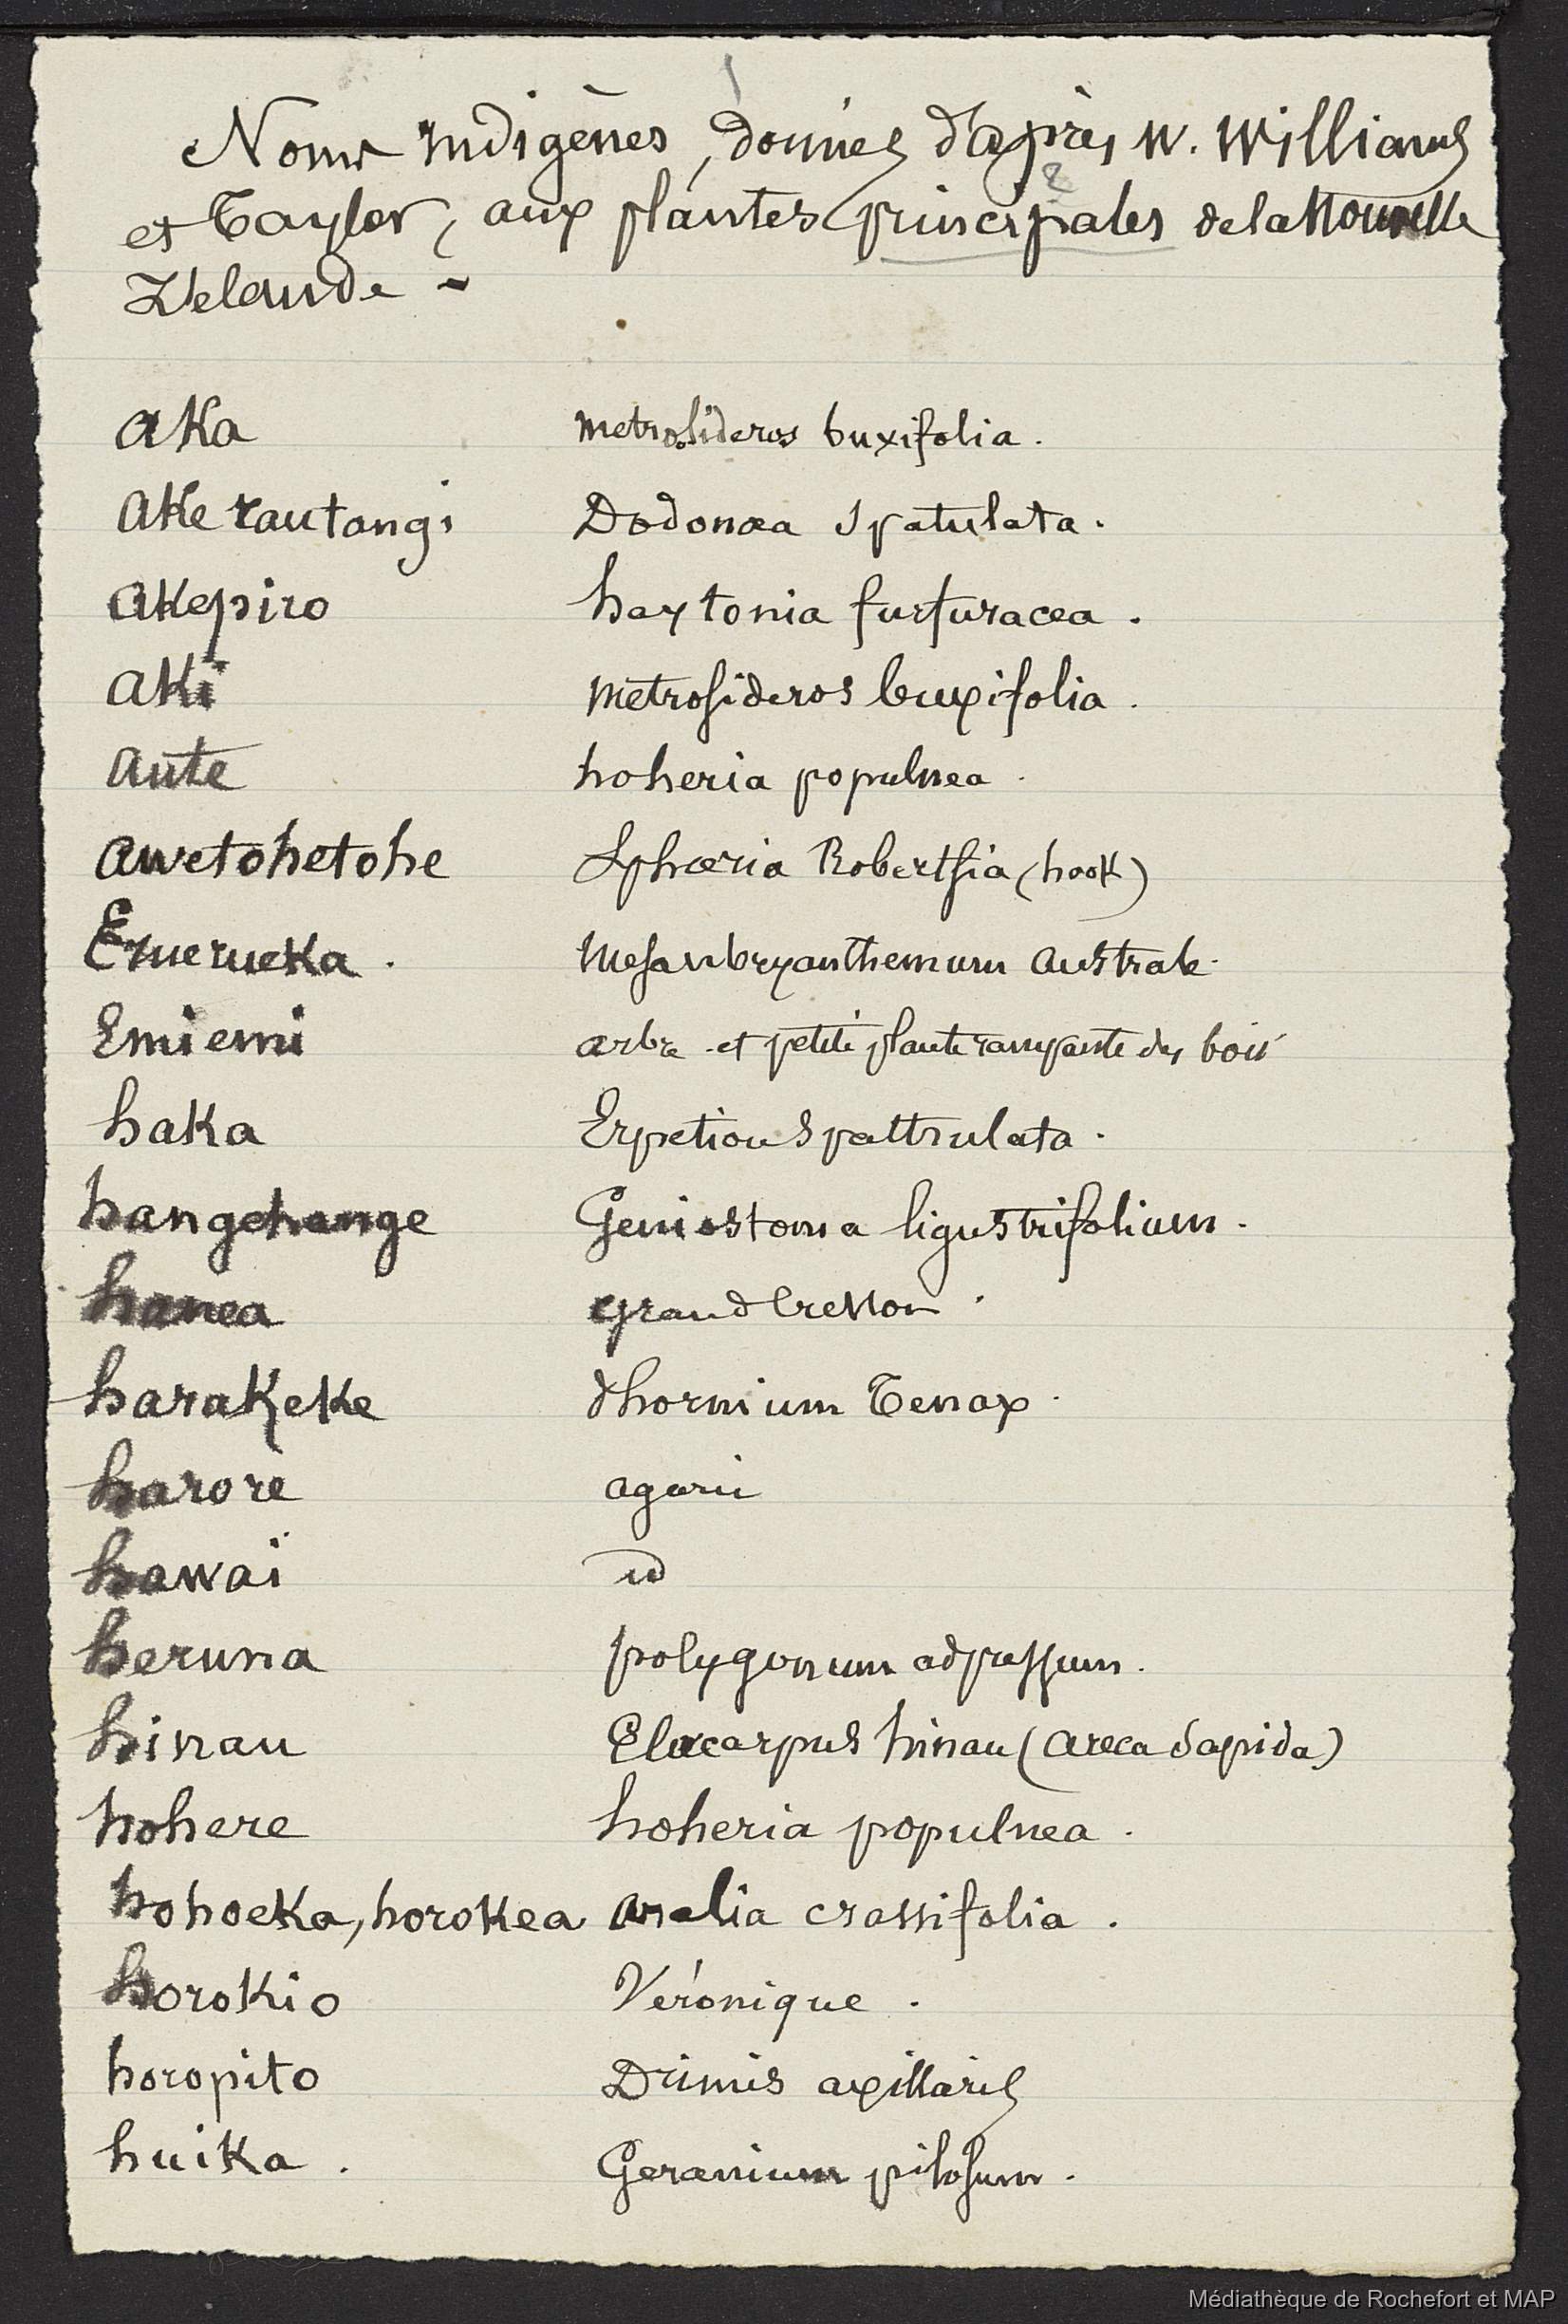 Noms indigènes, donnés d'après W. Williams
et Taylor, aux plantes principales de la Nouvelle
Zélande -
aka metrosideros buxifolia.
ake rautangi Dodonœa spatulata.
akepiro haxtonia furfuracea.
aki metrosideros buxifolia.
aute hoheria populnea.
awetohetohe Sphœria Robertsia (hook)
Eruerueka. mesanbryanthemum australe.
Emiemi arbre et petite plante rampante des bois
haka Erpetion spattulata.
hangehange Geniostoma ligustrifolium.
hanea grand cresson.
harakeke phormium Tenax.
harore agaric
hawaï id
heruna polygonum adpressum.
hinau Elœcarpus hinau (areca sapida)
hohere hoheria populnea.
hohoeka, horokea aralia crassifolia.
horokio Véronique.
horopito Drimis axillaris
huika. Geranium pilosum.
Médiathèque de Rochefort et MAP